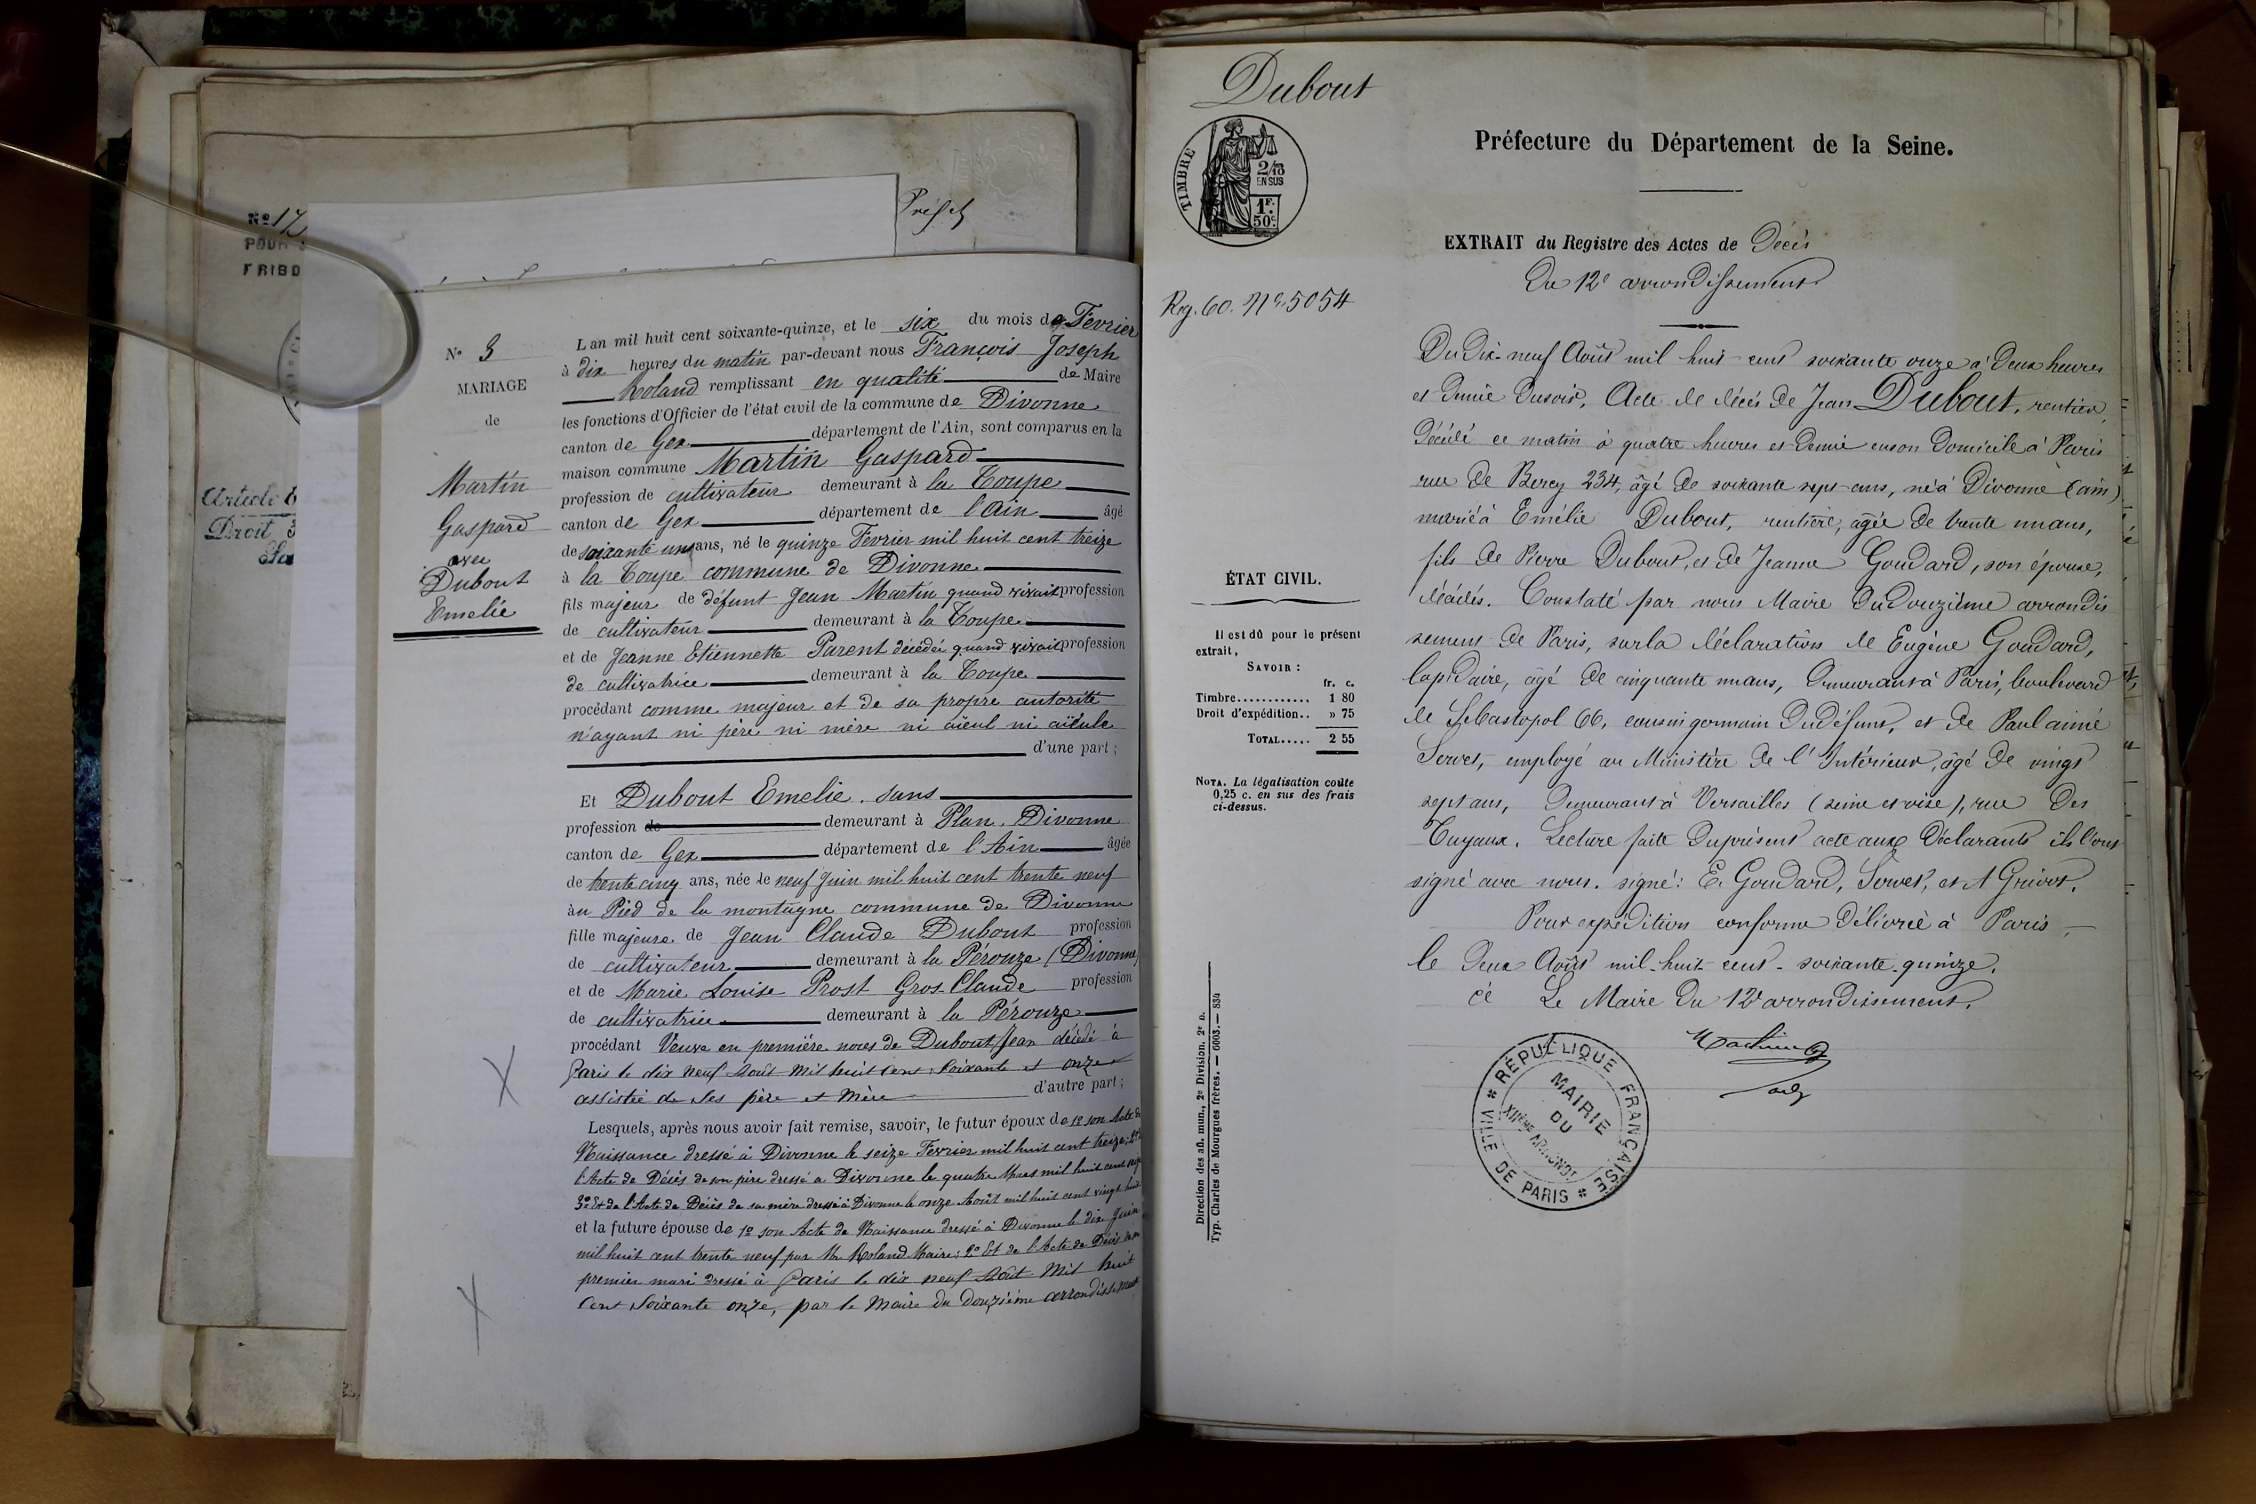 Nº 12
POUR
TRIBU
Préfet
Article 6
Droit 3
Nº 3
MARIAGE
de
Martin
Gaspard
avec
Dubout
Emelie
L'an mil huit cent soixante-quinze, et le six du mois de Fevrier
à dix heures du matin par-devant nous François Joseph
Roland remplissant en qualité de Maire
les fonctions d'Officier de l'état civil de la commune de Divonne
canton de Gex département de l'Ain, sont comparus en la
maison commune Martin Gaspard
profession de cultivateur demeurant à la Toupe
canton de Gex département de l'Ain âgé
de soixante un ans, né le quinze Fevrier mil huit cent treize
à la Toupe commune de Divonne
fils majeur de défunt Jean Martin quand vivait profession
de cultivateur demeurant à la Toupe
et de Jeanne Etiennette Parent décédée quand vivait profession
de cultivatrice demeurant à la Toupe
procédant comme majeur et de sa propre autorité
n'ayant ni père ni mère ni aïeul ni aïeule
d'une part ;
Et Dubout Emelie. sans
profession de demeurant à Plan. Divonne
canton de Gex département de l'Ain âgée
de trente cinq ans, née le neuf Juin mil huit cent trente neuf
àu Pied de la montagne commune de Divonne
fille majeure de Jean Claude Dubout profession
de cultivateur demeurant à la Pérouze (Divonne)
et de Marie Louise Prost Gros-Claude profession
de cultivatrice demeurant à la Pérouze
procédant Veuve en première noces de Dubout Jean décédé à
Paris le dix neuf Août mil huit cent soixante et onze
assistée de ses père et mère d'autre part ;
Lesquels, après nous avoir fait remise, savoir, le futur époux de 1º son Acte de
Naissance dressé à Divonne le seize Fevrier mil huit cent treize; 2º de
l'Acte de Décès de son père dressé à Divonne le quatre Mars mil huit cent
3º Et de l'Acte de Décès de sa mère dressé à Divonne le onze Août mil huit cent vingt huit
et la future épouse de 1º son Acte de Naissance dressé à Divonne le dix Juin
mil huit cent trente neuf par Mr Roland Maire; 2º Et de l'Acte de Décès de son
premier mari dressé à Paris le dix neuf Août Mil huit
Cent Soixante onze, par le Maire du Douzième arrondissement
Dubout
TIMBRE
2/10
EN SUS
1F.
50c.
Préfecture du Département de la Seine.
EXTRAIT du Registre des Actes de Décès
Du 12e arrondissement
Reg. 60. Nº 5054
Du Dix-neuf Août mil huit cent soixante onze à Deux heures
et Demie Du soir, Acte de décès de Jean Dubout, rentier,
Décédé ce matin à quatre heures et Demie en son Domicile à Paris
rue de Bercy 234, âgé de soixante sept ans, né à Divonne (ain)
marié à Emélie Dubout, rentière, âgée de trente un ans,
fils de Pierre Dubout, et de Jeanne Goudard, son épouse,
décédés. Constaté par nous Maire Du Douzième arrondis
sement de Paris, sur la déclaration de Eugène Goudard,
lapidaire, âgé de cinquante un ans, Demeurant à Paris, boulevard
de Sébastopol 66, cousin germain Du défunt, et de Paul aimé
Servet, employé au Ministère de l'Intérieur, âgé de vingt
sept ans, Demeurant à Versailles (seine et oise), rue Des
Tuyaux. Lecture faite Du présent acte aux Déclarants ils l'ont
signé avec nous. signé: E. Goudard, Servet, et A Grivot.
Pour expédition conforme Délivrée à Paris
le Deux Août mil-huit-cent-soixante-quinze.
Le Maire Du 12e arrondissement.
ÉTAT CIVIL.
Il est dû pour le présent
extrait,
SAVOIR :
fr. c.
Timbre............ 1 80
Droit d'expédition.. » 75
TOTAL..... 2 55
NOTA. La légalisation coûte
0,25 c. en sus des frais
ci-dessus.
Direction des aff. mun., 2e Division. 2e B.
Typ. Charles de Mourgues frères. — 6003.— 834
RÉPUBLIQUE FRANÇAISE
VILLE DE PARIS
MAIRIE
DU
XIIème ARRONDt